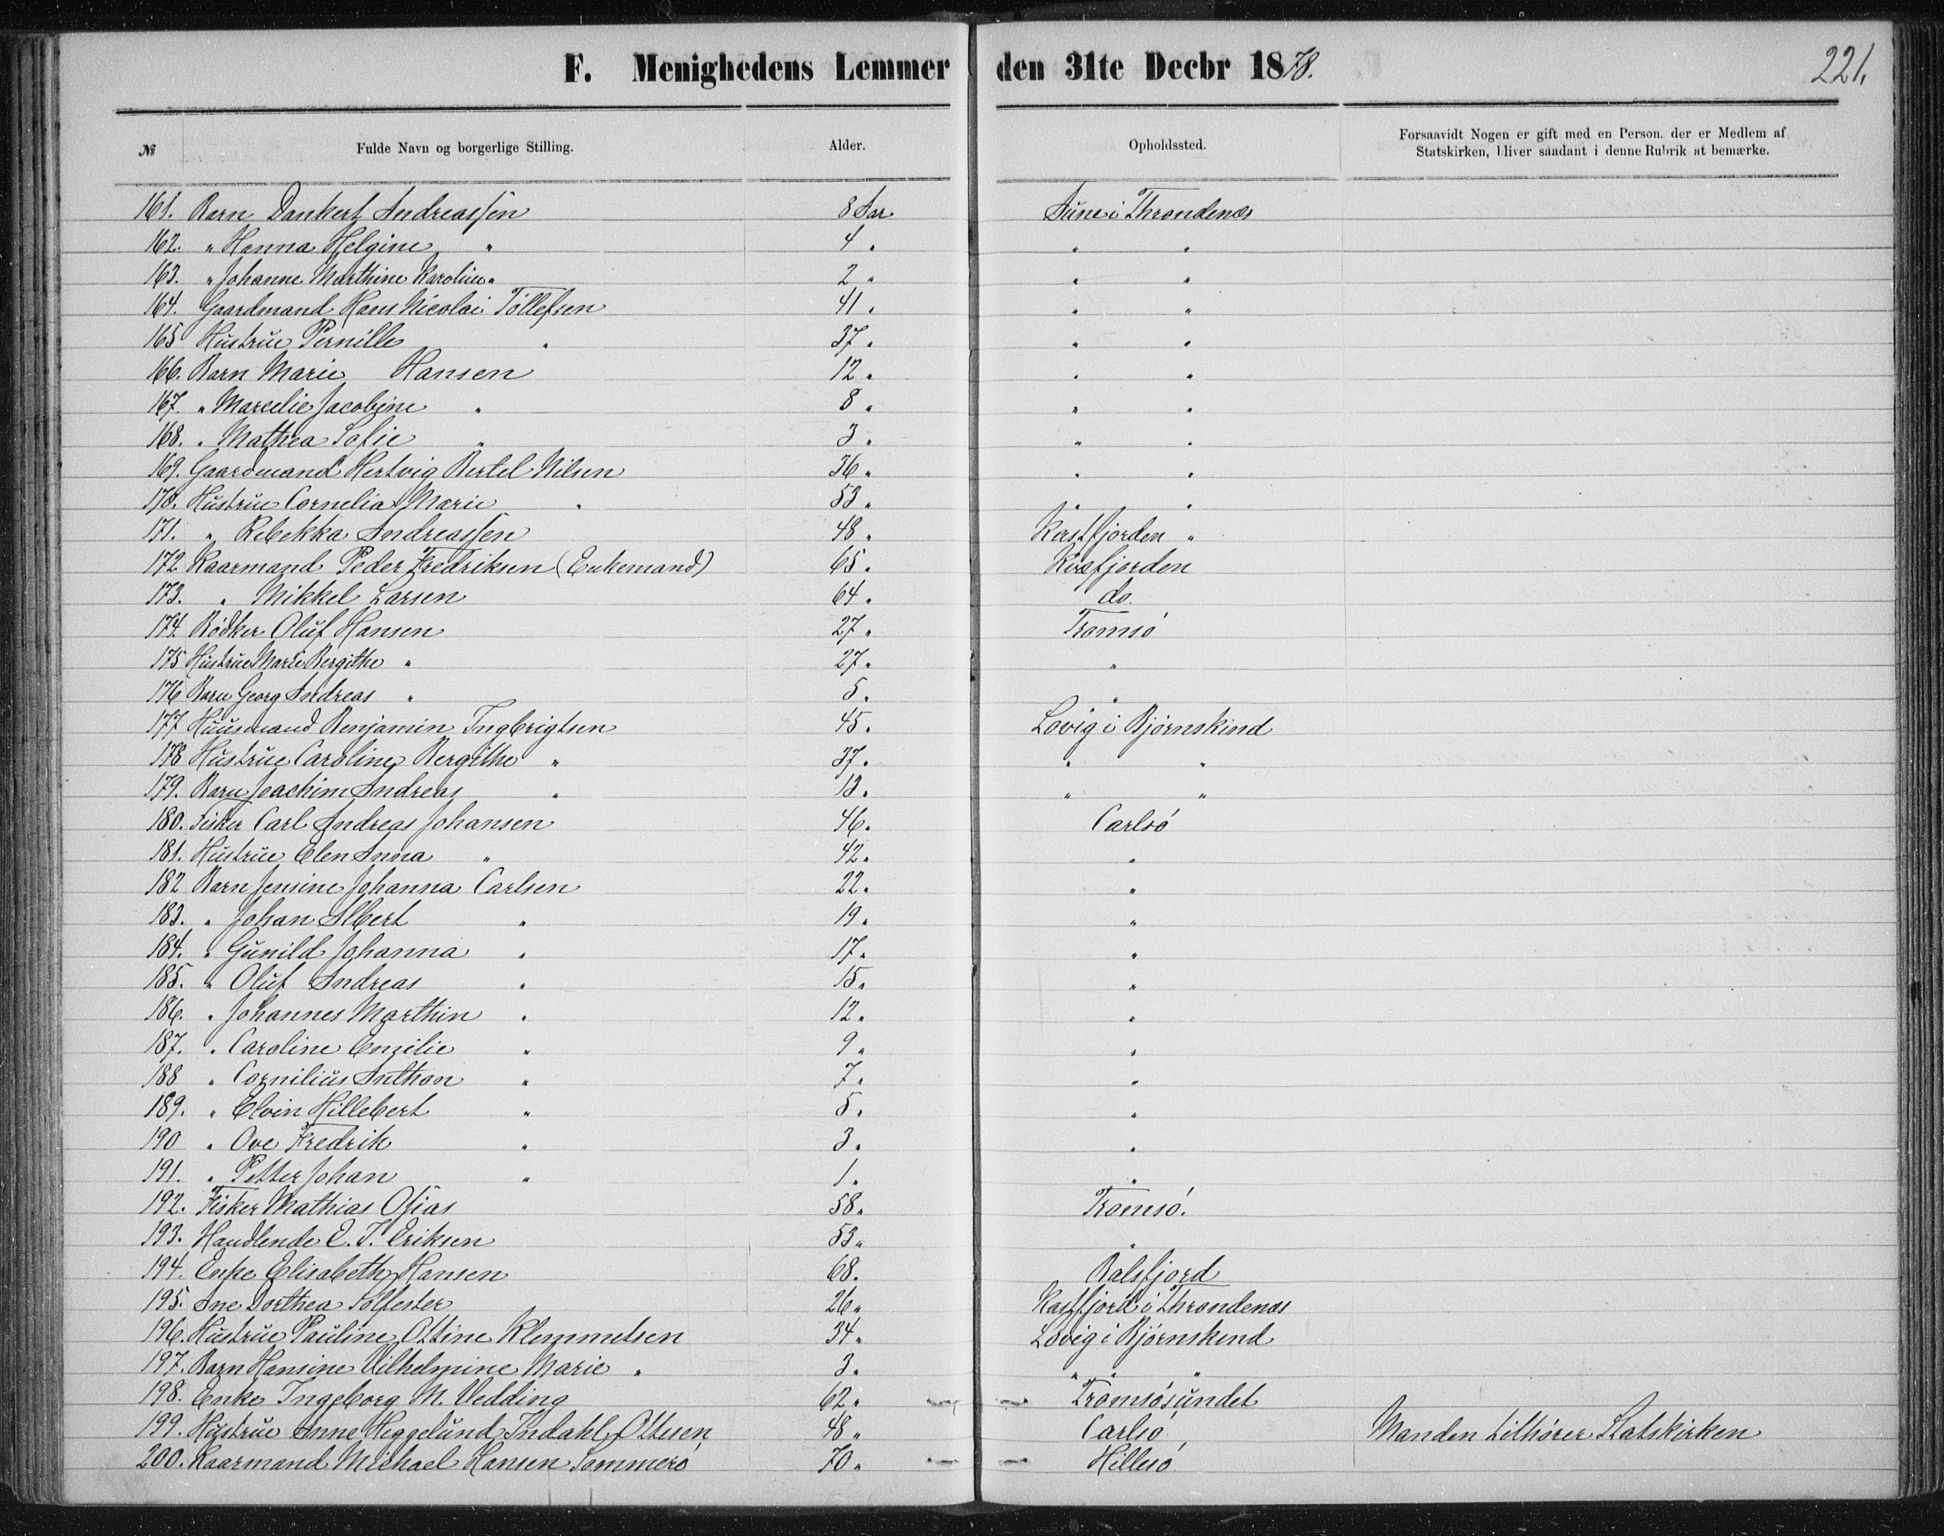 F. Menighedens Lemmer den 31te Decbr 1878. 221.
№ Fulde Navn og borgerlige Stilling. Alder. Opholdssted. Forsaavidt Nogen er gift med en Person, der er Medlem af Statskirken, bliver saadant i denne Rubrik at bemærke.
161. Barn Dankert Andreassen 8 Aar Aune i Throndenæs
162. " Hanna Helgine " 4 " " "
163. " Johanne Marthine Karoline " 2 " " "
164. Gaardmand Hans Nicolai Tollefsen 41 " " "
165 Hustrue Pernille " 37 " " "
166. Barn Marie Hansen 12 " " "
167. " Marcelie Jacobine " 8 " " "
168. " Mathea Sofie " 3 " " "
169. Gaardmand Hertvig Bertel Nilsen 36 " " "
170. Hustrue Cornelia Marie " 53 " " "
171. " Rebekka Andreassen 48 " Kastfjorden "
172 Kaarmand Peder Fredriksen (Enkemand) 65 " Kvæfjorden
173. " Mikkel Larsen 64 " do.
174. Bødker Oluf Hansen 27 " Tromsö
175 Hustrue Marie Bergithe " 27 " "
176 Barn Georg Andreas " 5 " "
177 Huusmand Benjamin Ingbrigtsen 45 " Lovig i Bjørnskind
178 Hustrue Caroline Bergithe " 37 " " "
179. Barn Joachim Andreas " 13 " " "
180. Fisker Carl Andreas Johansen 46 " Carlsö
181. Hustrue Elen Anna " 42 " "
182 Barn Jensine Johanna Carlsen 22 " "
183. " Johan Albert " 19 " "
184. " Gunild Johanna " 17 " "
185. " Oluf Andreas " 15 " "
186. " Johannes Marthin " 12 " "
187. " Caroline Emilie " 9 " "
188 " Cornilius Anthon " 7 " "
189. " Elvin Hillebert " 5 " "
190 " Ove Fredrik " 3 " "
191. " Petter Johan " 1 " "
192. Fisker Mathias Osias 58 " Tromsö.
193. Handlende E. J. Eriksen 53 " "
194. Enke Elisabeth Hansen 68 " Balsfjord
195. Ane Dorthea Solfester 26 " Kastfjord i Throndenæs
196. Hustrue Pauline Ottine Klemmetsen 34 " Lovig i Bjørnskind
197. Barn Hansine Vilhelmine Marie " 3 " " " "
198. Enke Ingeborg M. Vedding 62 " Tromsösundet
199. Hustrue Anne Heggelund Indahl Ottesen 48 " Carlsö Manden tilhører Statskirken
200. Kaarmand Michael Hansen Sommerö 70 " Hillesö